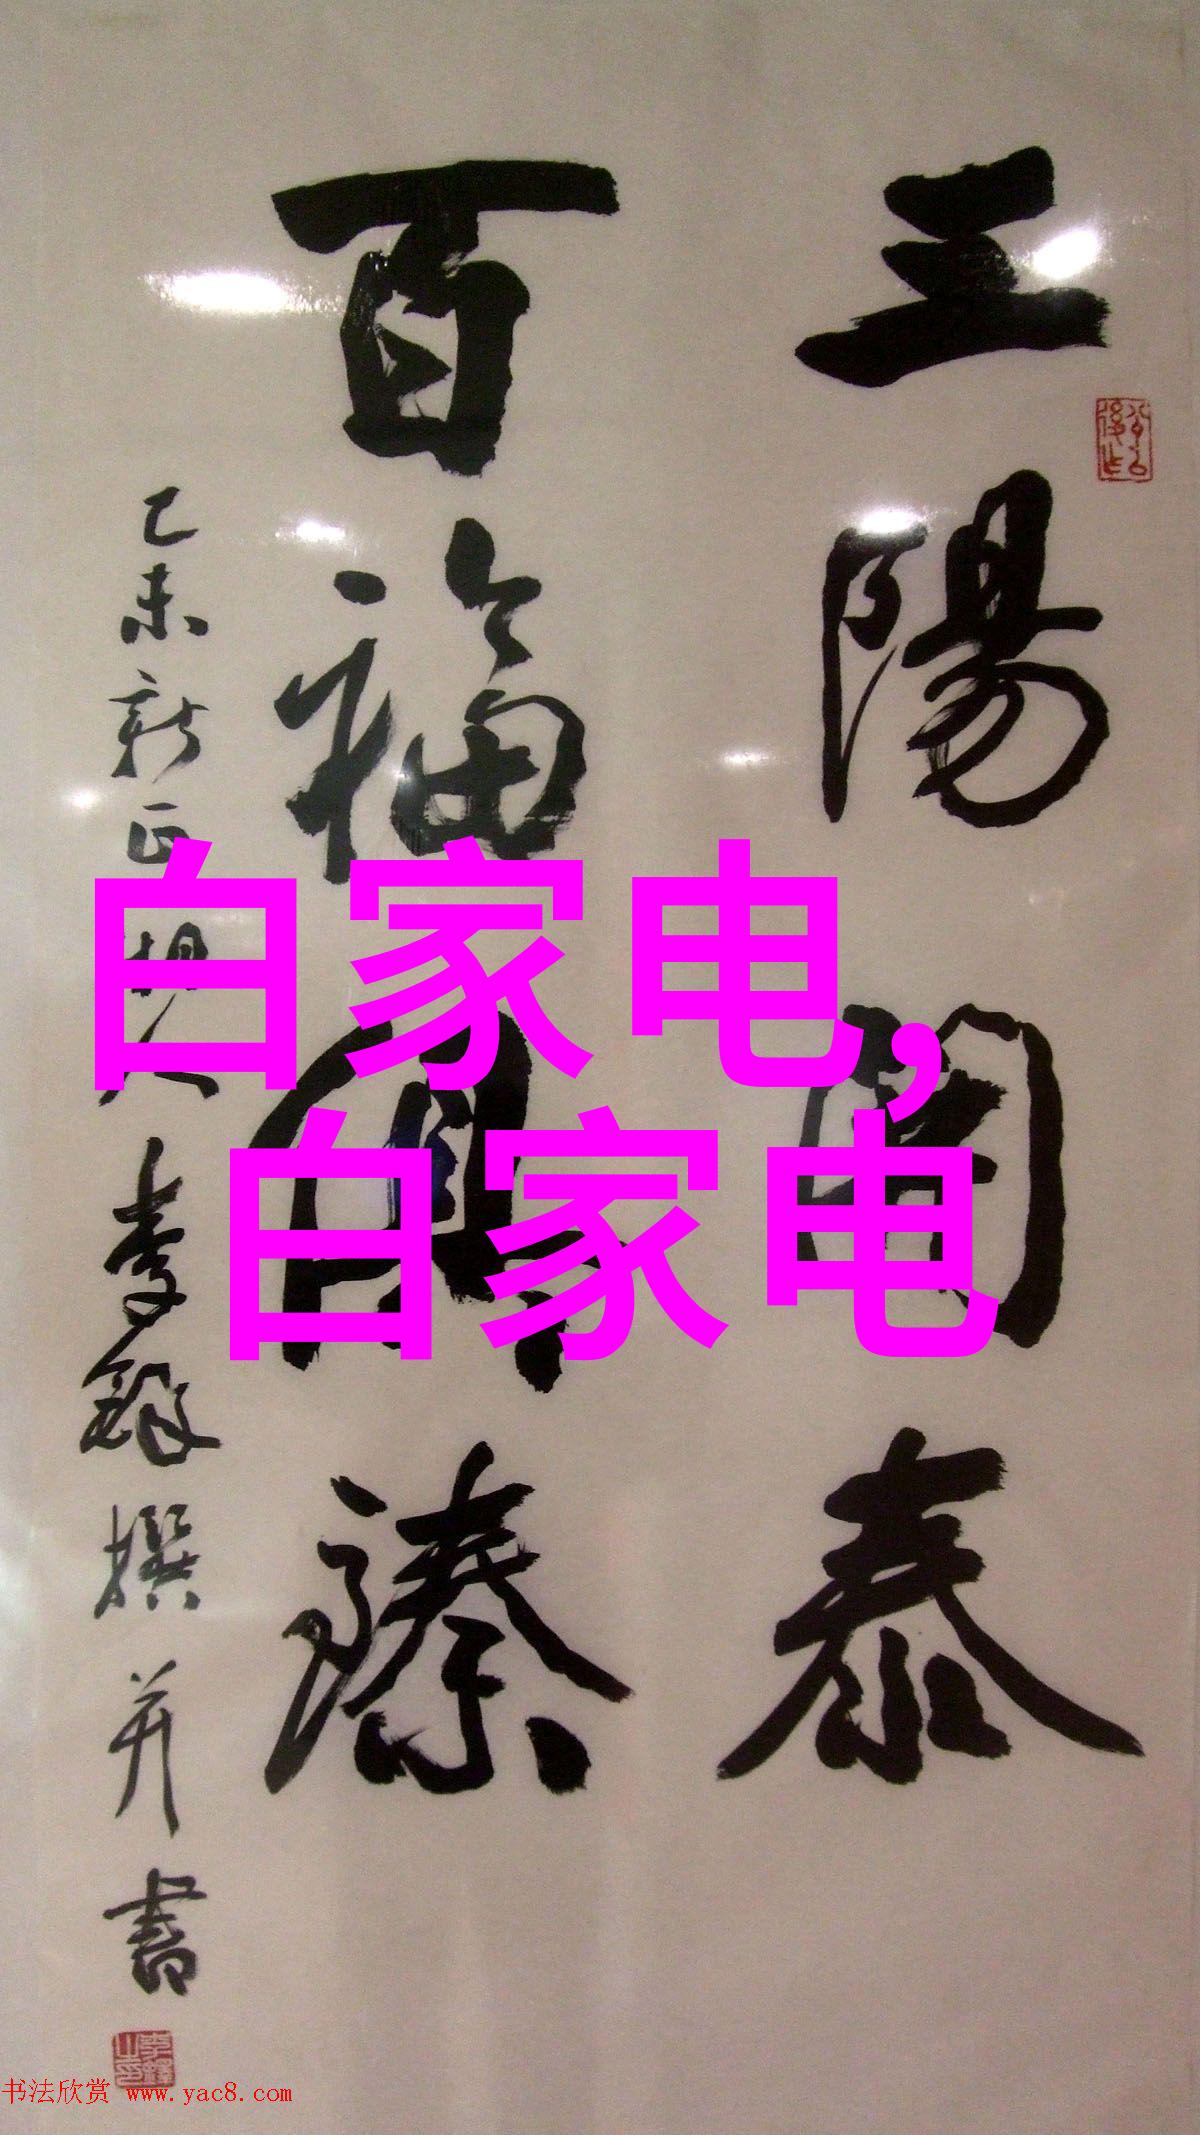 三陽開泰
百福具臻
乙未新正湘人李鐸撰并書
白家电,
白家电
书法欣赏 www.yac8.com